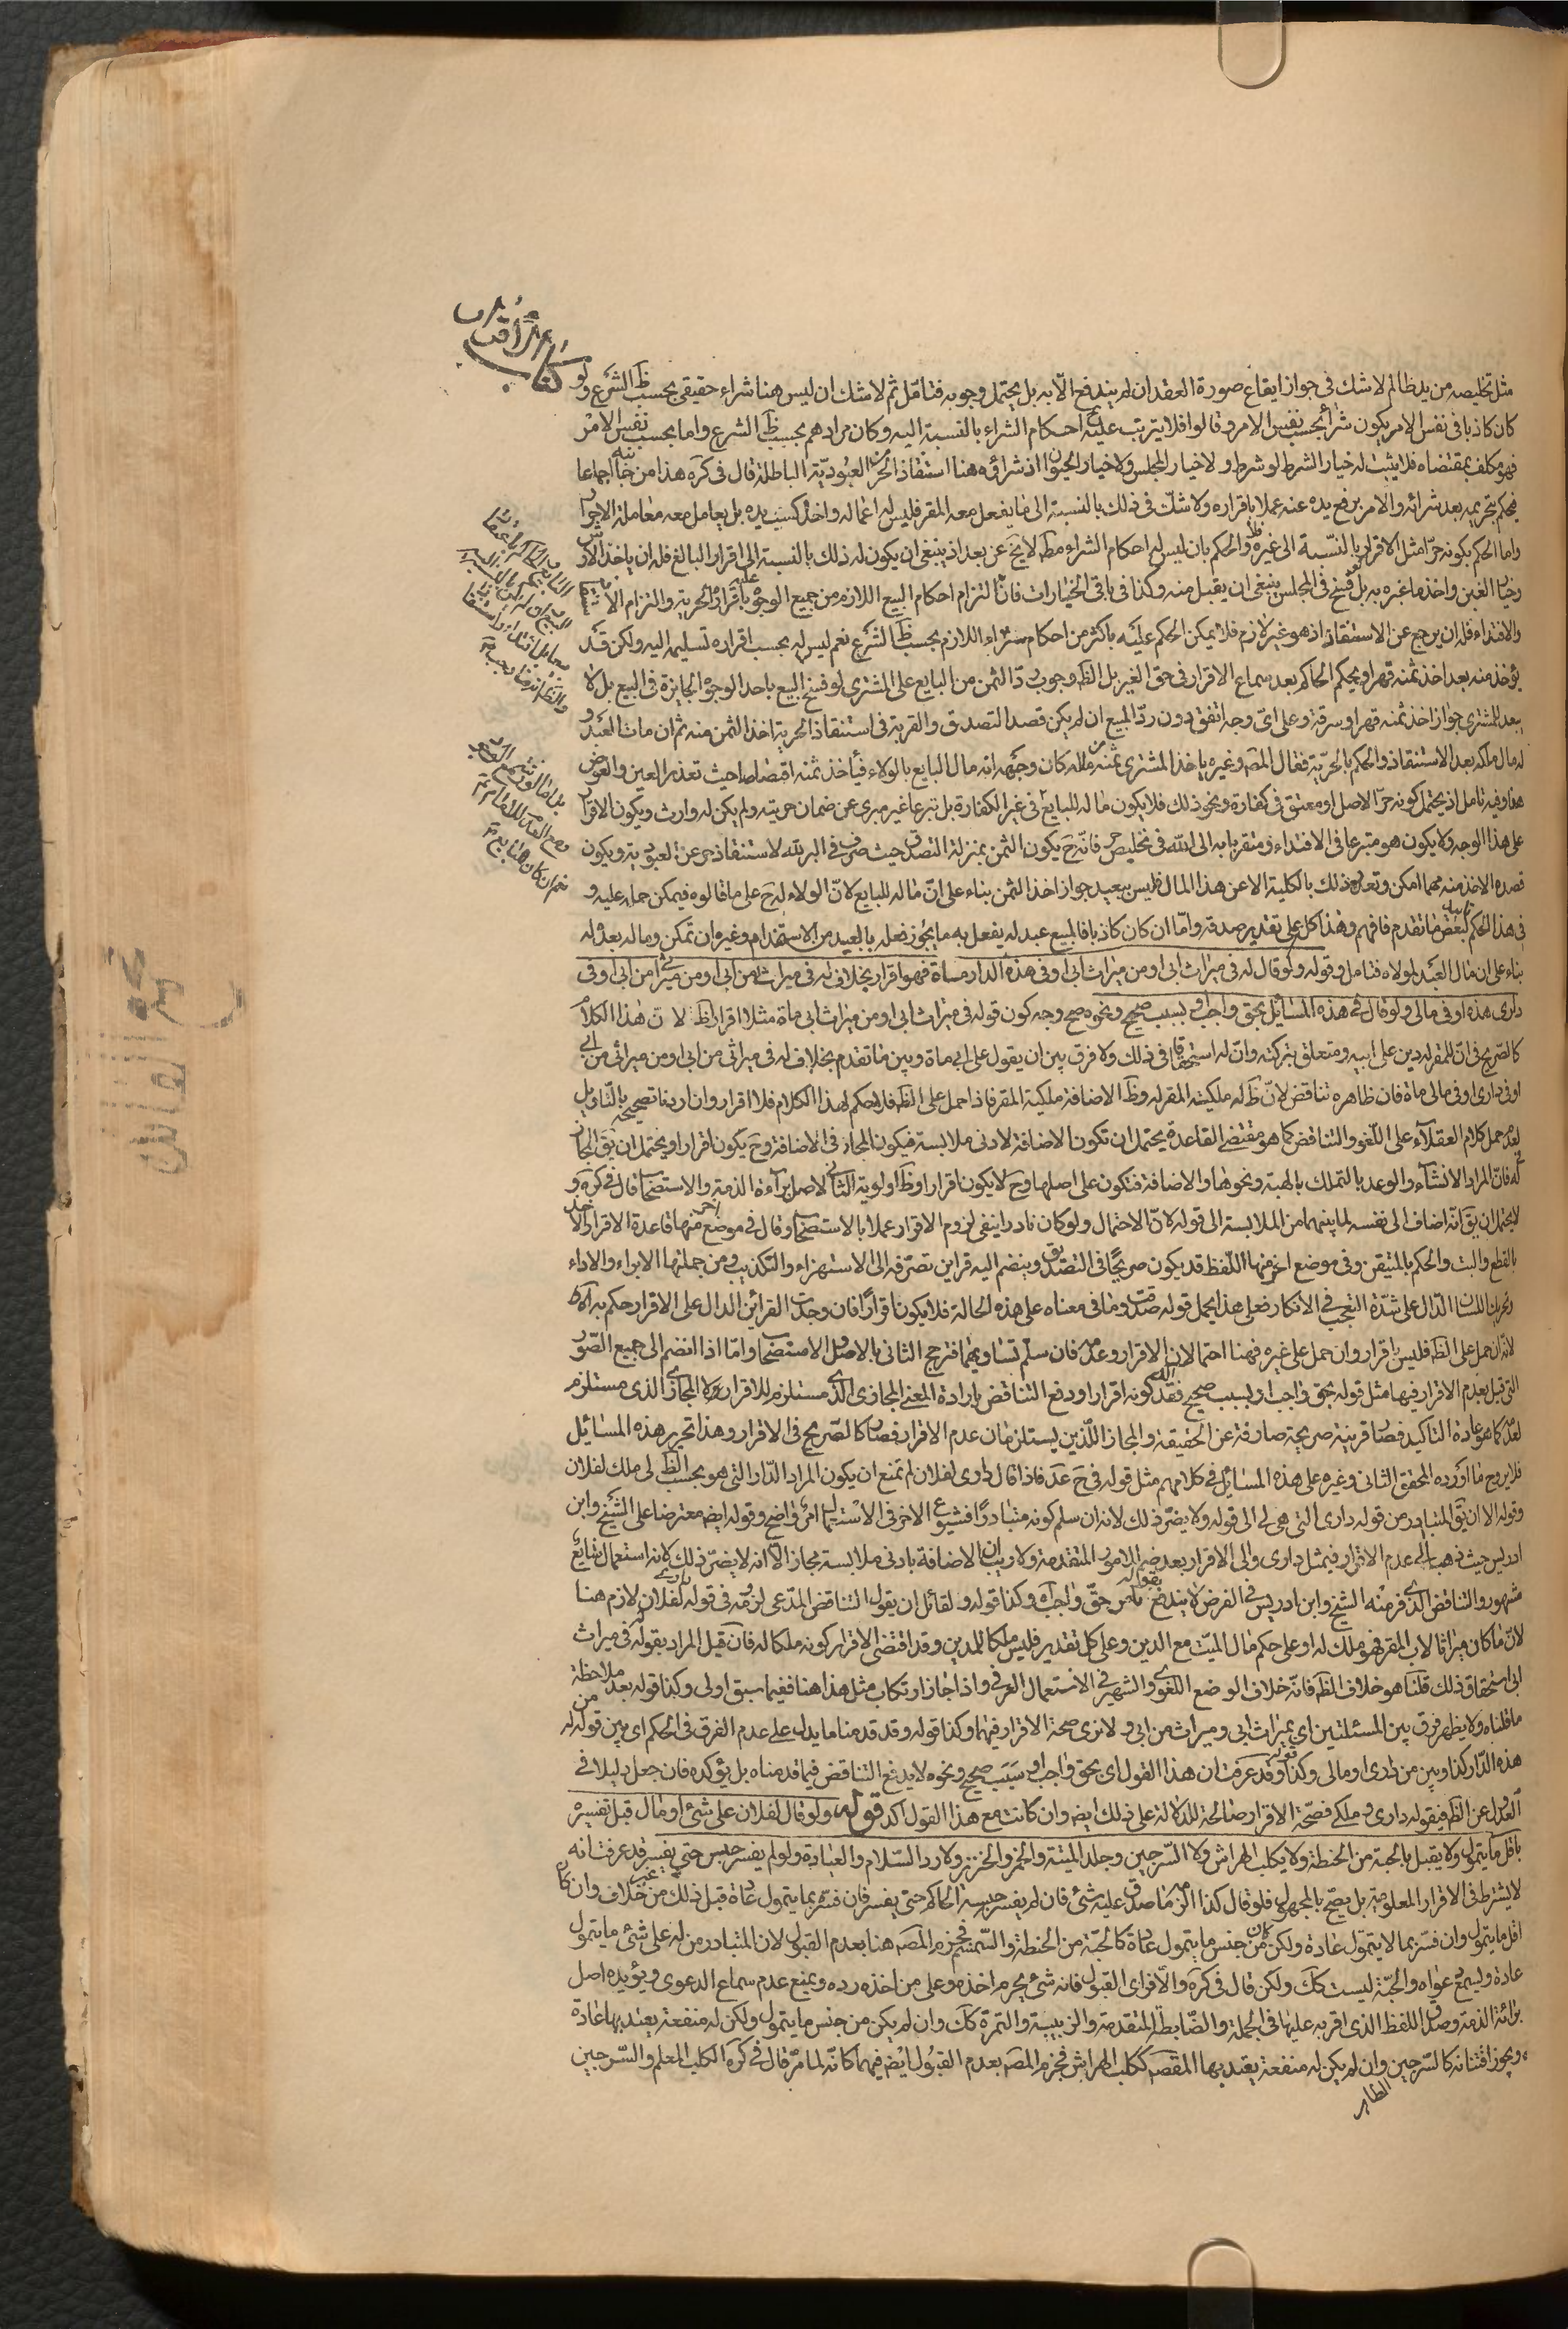 كتاب الاقرار
مثل تخليصه من يد ظالم لا شك في جواز ايقاع صورة العقد ان لم يندفع الا به بل يحتمل وجوبه فتامل ثم لا شك ان ليس هنا شراء حقيقي بحسب ظ الشرع ولو
كان كاذبا في نفس الامر يكون شراء بحسب نفس الامر وقالوا فلا يترتب عليه احكام الشراء بالنسبة اليه وكان مرادهم بحسب ظ الشرع واما بحسب نفس الامر
فهو مكلف بمقتضاه فلا يثبت له خيار الشرط لو شرط ولا خيار المجلس ولا خيار الحيوان اذ شراؤه هنا استنقاذ الحر من العبودية الباطلة قال في كره هذا من جانبه اجماعا
فيحكم بحريته بعد شرائه والامر برفع يده عنه عملا باقراره ولا شك في ذلك بالنسبة الى ما يفعل معه المقر فليس له اعماله واخذ كسب يده بل يعامل معه معاملة الاحرار
واما الحكم بكونه حرا مثل الاقرار بالنسبة الى غيره والحكم بان ليس له احكام الشراء مط لا يخ عن بعد اذ ينبغي ان يكون له ذلك بالنسبة الى اقرار البالغ فله ان ياخذ الارش
وخيار الغبن واخذ ما غبره به بل فسخ في المجلس ينبغي ان يقبل منه وكذا في باقي الخيارات فان التزام احكام البيع اللازم من جميع الوجوه باقراره عليه بالحرية والتزام
والافتداء فله ان يرجع عن الاستنقاذ اذ هو غير لازم فلا يمكن الحكم عليه باكثر من احكام شراء اللازم بحسب ظ الشرع نعم ليس له بحسب اقراره تسليمه اليه ولكن قد
يؤخذ منه بعد اخذ ثمنه قهرا ويحكم الحاكم بعد سماع الاقرار في حق الغير بل الظ وجوب رد الثمن من البايع على المشتري لو فسخ البيع باحد الوجوه الجايزة في البيع بل لا
يبعد للمشتري جواز اخذ ثمنه قهرا وسرقة وعلى اي وجه اتفق دون رد المبيع ان لم يكن قصد التصدق والقربة في استنقاذ الحرية اخذ الثمن منه ثم ان مات العبد و
له مال ملكه بعد الاستنقاذ والحكم بالحرية فقال المص وغيره ياخذ المشتري ثمنه من ماله كان وجهه انه مال البايع بالولاء فيأخذ ثمنه اقتصاصا حيث تعذر العين والعوض
هنا وفيه تامل اذ يحتمل كونه حر الاصل او معتق في كفارة ونحو ذلك فلا يكون ماله للبايع في غير الكفارة بل تبرعا غير مبرئ عن ضمان جريته ولم يكن له وارث ويكون الاقرار
على هذا الوجه ولا يكون هو متبرعا في الافتداء ومتقربا به الى الله في تخليص حر فانه ح يكون الثمن بمنزلة التصدق حيث صرف في البر لله لاستنقاذه عن العبودية ويكون
قصده الاخذ منه مهما امكن وتعذره ذلك بالكلية الا عن هذا المال فليس ببعيد جواز اخذ الثمن بناء على ان ماله للبايع لان الولاء له ح على ما قالوه فيمكن حمله عليه و
في هذا الحكم تاييد لبعض ما تقدم فافهم وهذا كله على تقدير صدقه واما ان كان كاذبا فالمبيع عبد له يفعل به ما يجوز فعله بالعبيد من الاستخدام وغيره ان تمكن وماله بعده له
بناء على ان مال العبد لمولاه فتامل وقوله ولو قال له في ميراث ابي او من ميراث ابي او في هذه الدار مائة فهو اقرار بخلاف له في ميراثي من ابي او من ميراثي من ابي او في
داري هذه او في مالي ولو قال في هذه المسائل بحق واجب او بسبب صحيح ونحوه صح وجه كون قوله في ميراث ابي او من ميراث ابي مائة مثلا اقرار اظ لان هذا الكلام
كالصريح في ان للمقر له دين على ابيه ومتعلق بتركته وان له استحقاقا في ذلك ولا فرق بين ان يقول على ابي مائة وبين ما تقدم بخلاف له في ميراثي من ابي او من ميراثي من ابي
او في داري او في مالي مائة فان ظاهره تناقض لان ظ له ملكية المقر له وظ الاضافة ملكية المقر فاذا حمل على الظ فلا حكم لهذا الكلام فلا اقرار وان اريد تصحيحه بالتاويل
لعدم حمل كلام العقلاء على اللغو والتناقض كما هو مقتضى القاعدة يحتمل ان تكون الاضافة لادنى ملابسة فيكون المجاز في الاضافة وح يكون اقرارا ويحتمل ان يق المجاز في
له فان المراد الانشاء والوعد بالتملك بالهبة ونحوهما والاضافة فتكون على اصلها وح لا يكون اقرارا وظ اولوية الثاني لاصل براءة الذمة والاستصحاب قال في كره و
لا يحتمل ان يق انه اضاف الى نفسه لما بينهما من الملابسة الى قوله لان الاحتمال ولو كان نادرا ينفي لزوم الاقرار عملا بالاستصحاب وقال في موضع اخر منها قاعدة الاقرار الاخذ
بالقطع والبت والحكم بالمتيقن وفي موضع اخر منها اللفظ قد يكون صريحا في التصديق وينضم اليه قراين تصرفه الى الاستهزاء والتكذيب ومن جملتها الابراء والاداء
وتحريك اللسان الدال على شدة التعجب في الانكار فعلى هذا يحمل قوله صدقت وما في معناه على هذه الحالة فلا يكون اقرارا فان وجدت القرائن الدال على الاقرار حكم به
لانه ان حمل على الظ فليس باقرار وان حمل على غيره فهنا احتمالان الاقرار وعدمه فان سلم تساويهما فترجح الثاني بالاصل والاستصحاب واما اذا انضم الى جميع الصور
التي قيل بعدم الاقرار فيها مثل قوله بحق واجب او بسبب صحيح فقد كونه اقرارا ودفع التناقض بارادة المعنى المجازي الذي مستلزم للاقرار ولا المجازي الذي مستلزم
لعدمه كما هو عادة التاكيد فصار قرينة صريحة صارفة عن الحقيقة والمجاز اللذين يستلزمان عدم الاقرار فصار كالصريح في الاقرار وهذا تحرير هذه المسائل
فلا يروج ما اورده المحقق الثاني وغيره على هذه المسائل في كلامهم مثل قوله في ح عد فاذا قال داري لفلان لم تمنع ان يكون المراد الدار التي هو بحسب الظ لي ملك لفلان
وقوله الا ان يق المتبادر من قوله داري التي هي لي الى قوله ولا يضر ذلك لانه ان سلم كونه متبادرا فشيوع الاخر في الاستعمال امر واضح وقوله ايضه معترضا على الشيخ وابن
ادريس حيث ذهبا الى عدم الاقرار فيمثل داري والى الاقرار بعد ضم الامور المتقدمة ولا ريب ان الاضافة بادنى ملابسة مجاز الا انه لا يضر ذلك لانه استعمال شايع
مشهور والتناقض الذي فر منه الشيخ وابن ادريس في الفرض لا يندفع بقوله بامر حق واجب اه وكذا قوله ولقائل ان يقول التناقض المدعى لزومه في قوله لفلان لازم هنا
لان ما كان ميراثا لاب المقر فهو ملك له او على حكم مال الميت مع الدين وعلى كل تقدير فليس ملكا للمدين وقد اقتضى الاقرار كونه ملكا له فان قيل المراد بقوله له في ميراث
ابي استحقاق ذلك قلنا هو خلاف الظ فانه خلاف الوضع اللغوي والشهير في الاستعمال العرفي واذا جاز ارتكاب مثل هذا هنا ففيما سبق اولى وكذا قوله بعد ملاحظة
ما قلناه ولا يظهر فرق بين المسئلتين اي ميراث ابي وميراث من ابي ولا نرى صحة الاقرار فيهما وكذا قوله وقد قدمنا ما يدل على عدم الفرق في الحكم اي بين قوله له من
هذه الدار كذا وبين من داري او مالي وكذا قوله وقد عرفت ان هذا القول اي بحق واجب او سبب صحيح ونحوه لا يدفع التناقض فيما قدمناه بل يؤكده فان جعل دليلا في
العدول عن الظ فيقوله داري وملكي فصحة الاقرار صالحة للدلالة على ذلك ايضه وان كانت مع هذا القول اكد قوله ولو قال لفلان على شئ او مال قبل تفسيره
باقل ما يتمول ولا يقبل بالحبة من الحنطة ولا بكلب الهراش ولا السرجين وجلد الميتة والخمر والخنزير ولا رد السلام والعيادة ولو لم يفسر حبس حتى يفسر قد عرفت انه
لا يشترط في الاقرار المعلومية بل يصح بالمجهول فلو قال كذا الزم ما صدق عليه شئ فان لم يفسر حبسه الحاكم حتى يفسر فان فسر بما يتمول عادة قبل ذلك من غير خلاف وان كان
اقل ما يتمول وان فسر بما لا يتمول عادة ولكن كان من جنس ما يتمول عادة كالحبة من الحنطة والسمسم فجزم المصه هنا بعدم القبول لان المتبادر من له على شئ ما يتمول
عادة وليسمع دعواه والحبة ليست كك ولكن قال في كره والاقرب القبول فانه شئ يحرم اخذه وعلى من اخذه رده ويمنع عدم سماع الدعوى ويؤيده اصل
برائة الذمة وصدق اللفظ الذي اقر به عليها في الجملة والضابطة المتقدمة والزبيبة والتمرة كك وان لم يكن من جنس ما يتمول ولكن له منفعة يعتد بها عادة
ويجوز اقتنائه كالسرجين وان لم يكن له منفعة يعتد بها المقصه ككلب الهراش فجزم المصه بعدم القبول ايضه فيهما كانه لما مر قال في كره الكلب المعلم والسرجين
الطاهر
مجمع الفائدة